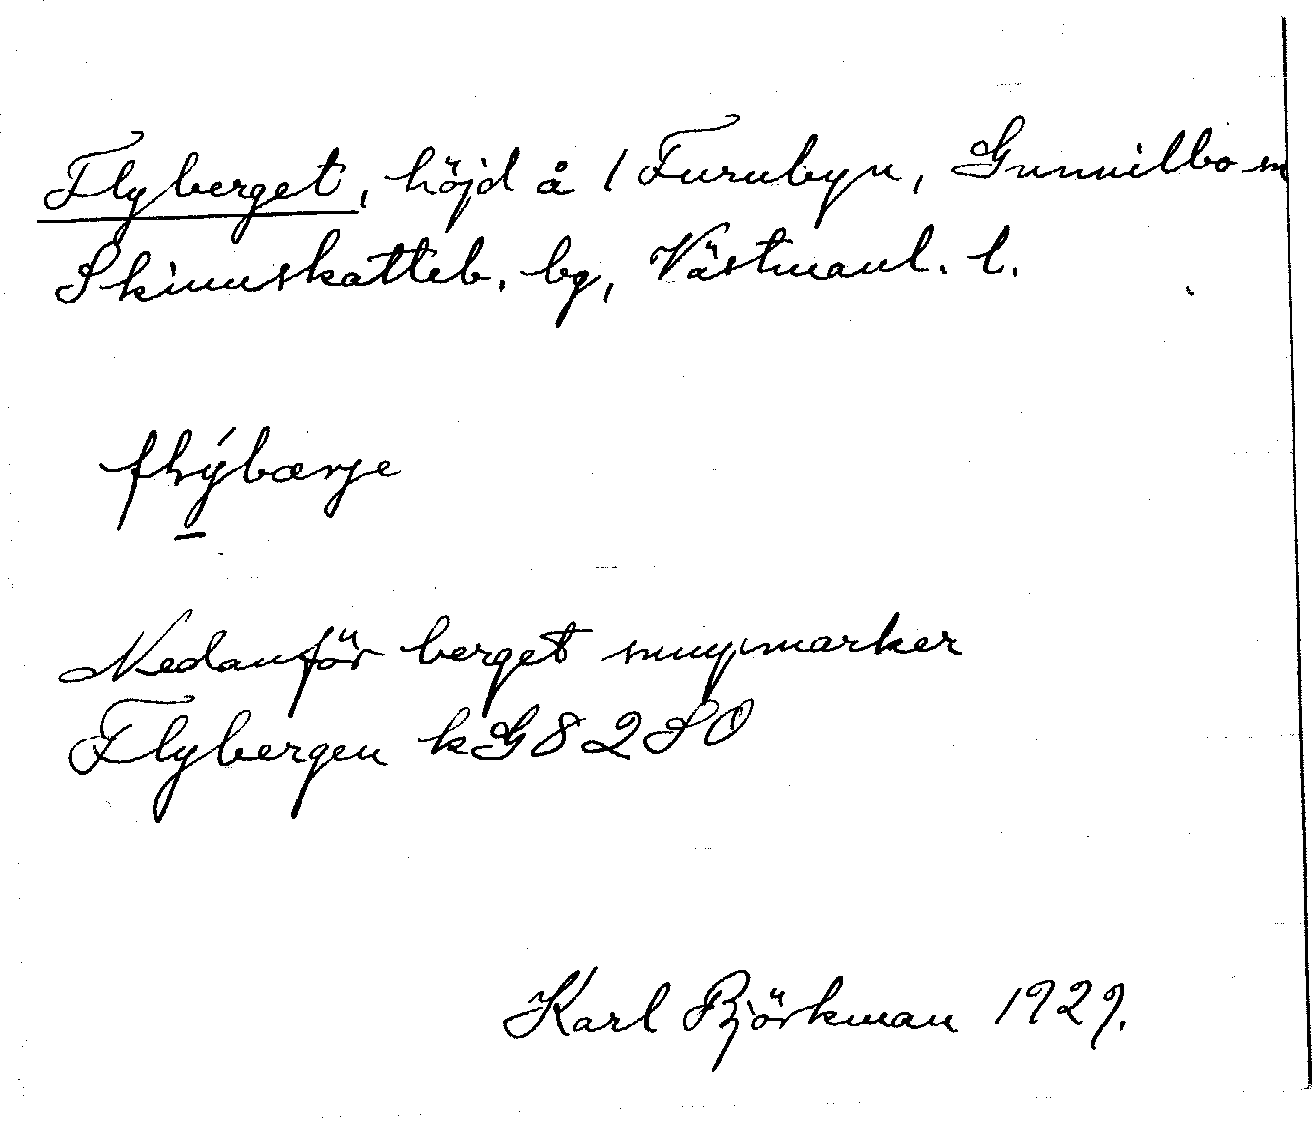 Flyberget, höjd å 1 Furubyn, Gunnilbo sn
Skinnskatteb. bg, Västmanl. l.
Nedanför berget myrmarker
Flybergen kG82SO
Karl Björkman 1929.